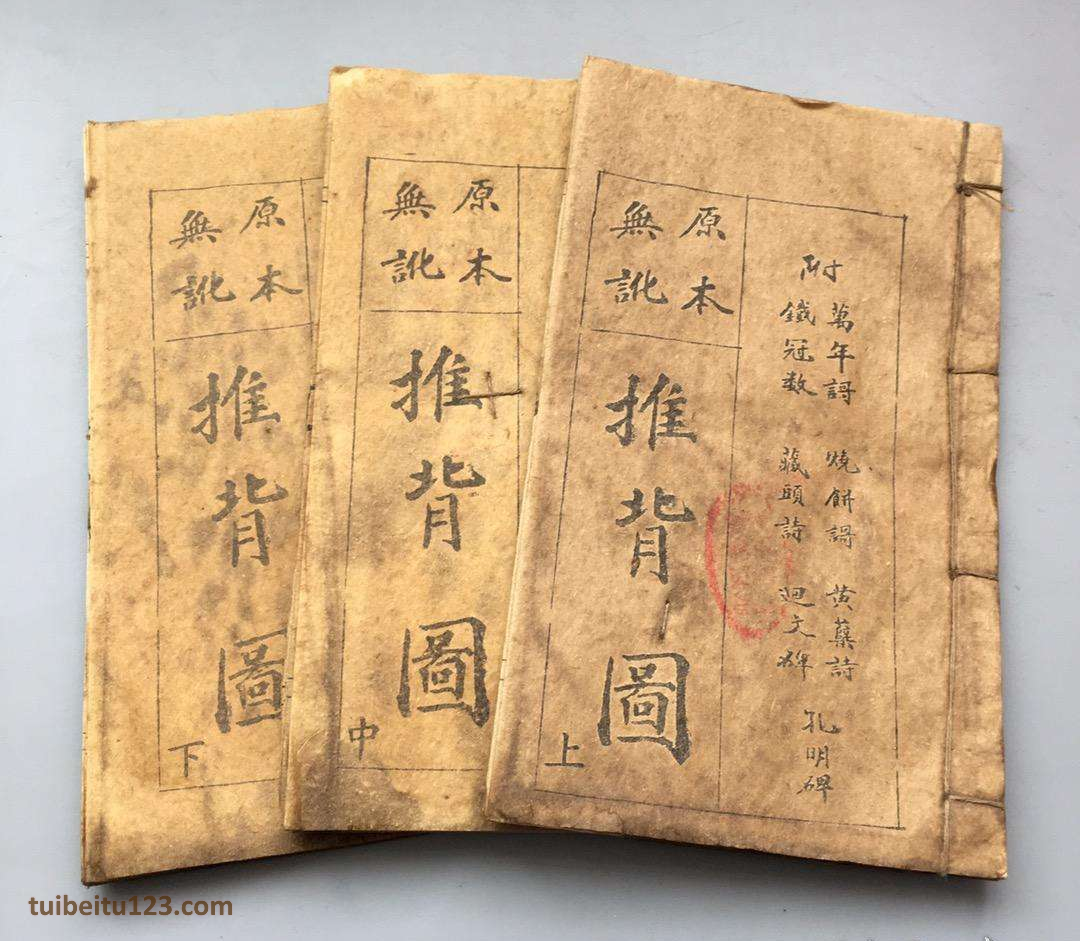 附
萬年謌 燒餅謌 黄蘗詩
鐵冠数 藏頭詩 迴文碑
孔明碑
原本
無訛
推背圖
上
原本
無訛
推背圖
中
原本
無訛
推背圖
下
tuibeitu123.com